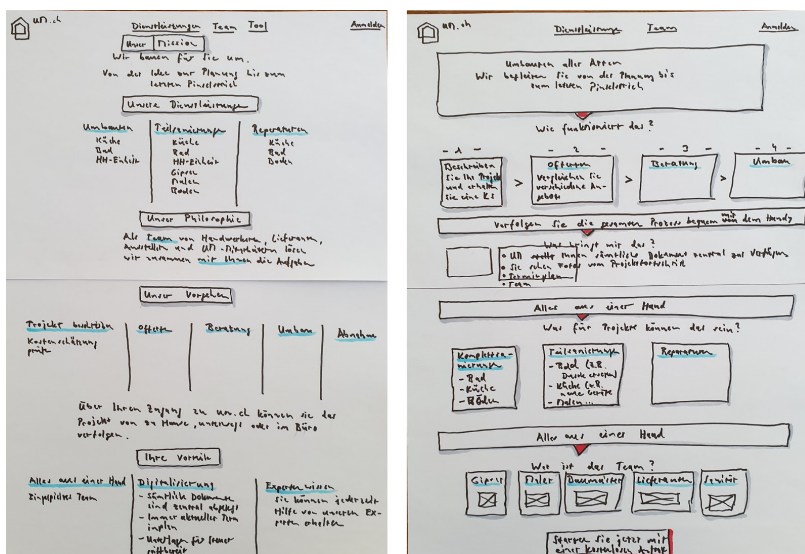 un.ch
Dienstleistungen Team Tool
Anmelden
Unser Mission
Wir bauen für Sie um.
Von der Idee zur Planung bis zum
letzten Pinselstrich
Unsere Dienstleistungen
Umbauten
Küche
Bad
HH-Einheit
Teilsanierungen
Küche
Bad
HH-Einheit
Gipser
Malen
Boden
Reparaturen
Küche
Bad
Boden
Unser Philosophie
Als Team von Handwerkern, Lieferanten,
und UN Mitarbeitern lösen
wir zusammen mit Ihnen die Aufgaben
Unser Vorgehen
Projekt beschreiben
Kostenschätzung
prüfen
Offerte
Beratung
Umbau
Abnahme
Über Ihren Zugang zu un.ch können sie das
Projekt von zu Hause, unterwegs oder im Büro
verfolgen.
Ihre Vorteile
Alles aus einer Hand
Eingespieltes Team
Digitalisierung
- Sämtliche Dokumente
sind zentral abgelegt
- Immer aktueller Term
inplan
- Unterlagen für Steuer
griffbereit
Expertenwissen
Sie können jederzeit
Hilfe von unseren Ex-
perten erhalten
un.ch
Dienstleistungen Team
Anmelden
Umbauten aller Arten
Wir begleiten Sie von der Planung bis
zum letzten Pinselstrich
Wie funktioniert das?
- 1 - - 2 - - 3 - - 4 -
Beschreiben
Sie Ihr Projekt
und erhalten
Sie eine KS
>
Offerten
Vergleichen Sie
verschiedene An-
gebote
>
Beratung
>
Umbau
Verfolgen Sie die gesamten Prozess bequem mit dem Handy
Was bringt mir das?
• UN stellt Ihnen sämtliche Dokument zentral zur Verfügung
• Sie sehen Fotos vom Projektfortschritt
• Terminplan
• Team
Alles aus einer Hand
Was für Projekte können das sein?
Komplettsa-
nierungen
- Bad
- Küche
- Böden
Teilsanierungen
- Bad (z.B.
Dusche ersetzen)
- Küche (z.B.
neue Geräte
- Malen...
Reparaturen
Alles aus einer Hand
Wer ist das Team?
Gipser Maler Baumeister Lieferanten Sanitär
Starten Sie jetzt mit
einer kostenlosen